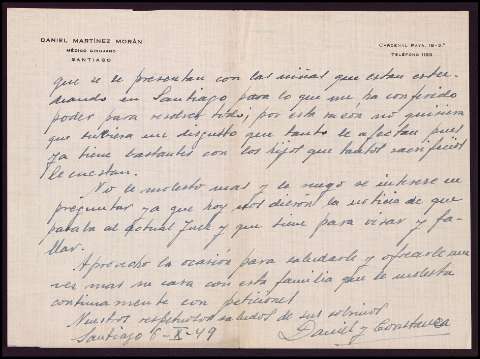 DANIEL MARTÍNEZ MORÁN
MÉDICO CIRUJANO
SANTIAGO
CARDENAL PAYÁ, 18-2.°
TELÉFONO 1185
que se le presentan con las niñas que estan estu-
diando en Santiago para lo que me ha conferido
poder para resolver todo; por esta razón no quisiera
que tuviera un disgusto que tanto le afectan pues
ya tiene bastantes con los hijos que tantos sacrificios
le cuestan.
No le molesto mas y le ruego se interese en
preguntar ya que hoy nos dieron la noticia de que
pasaba al actual Juez y que tiene para visar y fa-
llar.
Aprovecho la ocasión para saludarle y ofrecerle una
vez mas su casa con esta familia que le molesta
continuamente con peticiones
Nuestros respetuosos saludos de sus sobrinos
Santiago 8-X-49
Daniel y Constanza